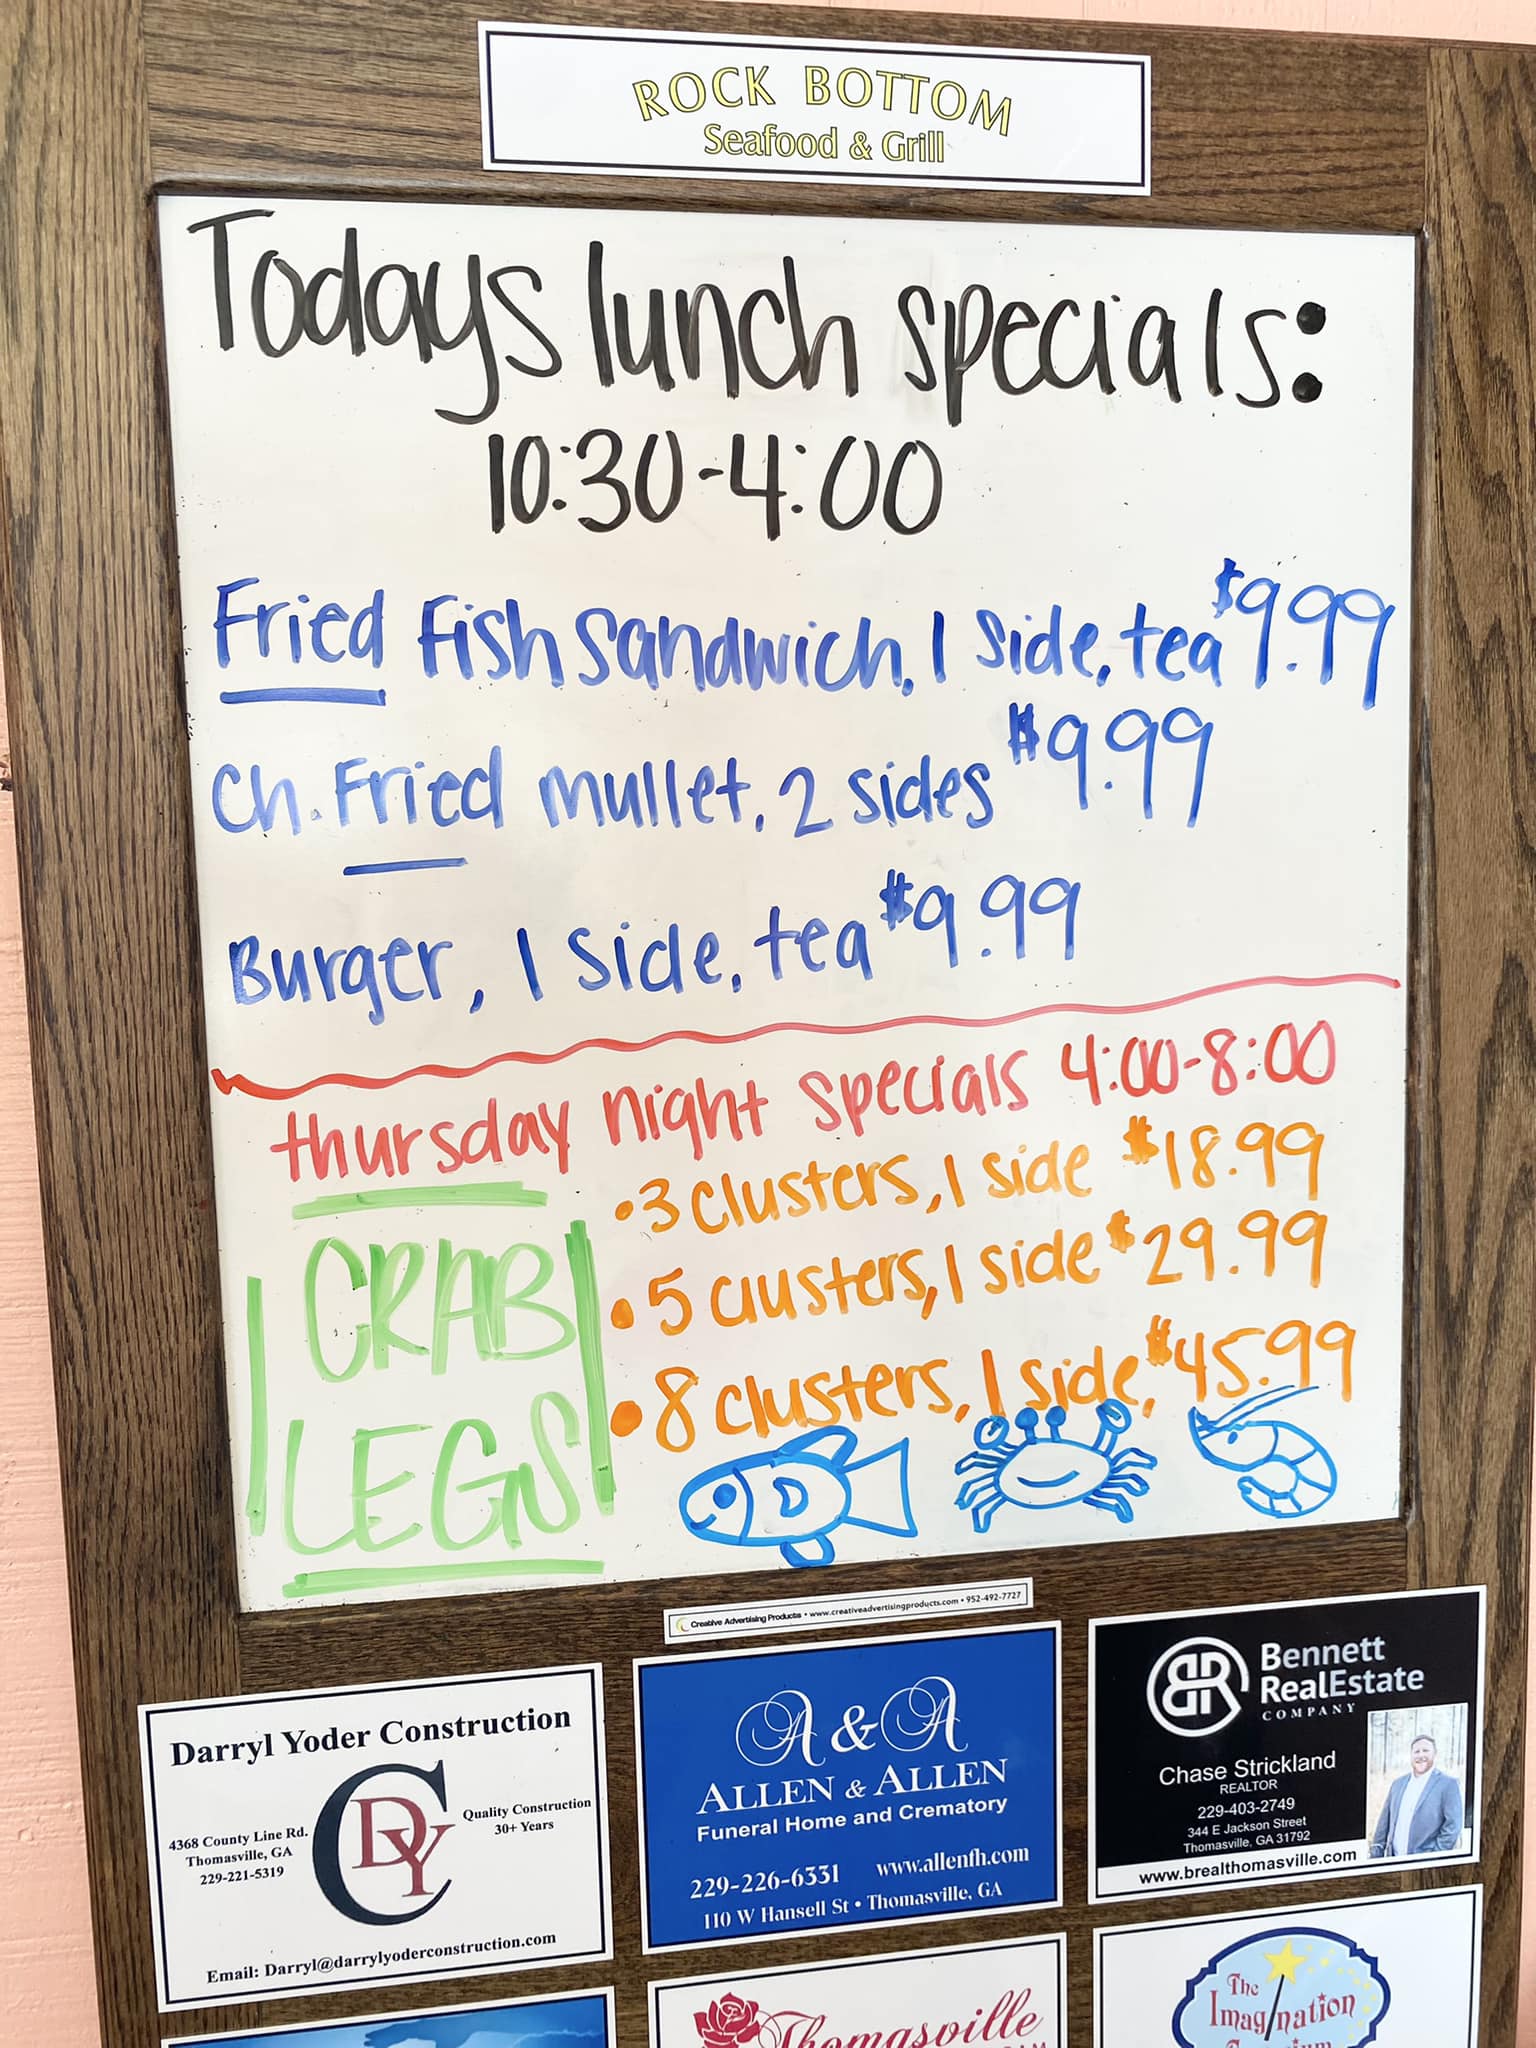 ROCK BOTTOM
Seafood & Grill
Todays lunch specials:
10:30-4:00
Fried Fish Sandwich, 1 side, tea $9.99
Ch. Fried mullet, 2 sides $9.99
Burger, 1 side, tea $9.99
thursday night specials 4:00-8:00
CRAB
LEGS
•3 clusters, 1 side $18.99
•5 clusters, 1 side $29.99
•8 clusters, 1 side, $45.99
Creative Advertising Products • www.creativeadvertisingproducts.com • 952-492-7727
Darryl Yoder Construction
4368 County Line Rd.
Thomasville, GA
229-221-5319
CDY
Quality Construction
30+ Years
Email: Darryl@darrylyoderconstruction.com
A & A
ALLEN & ALLEN
Funeral Home and Crematory
229-226-6331 www.allenfh.com
110 W Hansell St • Thomasville, GA
BR
Bennett
RealEstate
COMPANY
Chase Strickland
REALTOR
229-403-2749
344 E Jackson Street
Thomasville, GA 31792
www.brealthomasville.com
Thomasville
The
Imagination